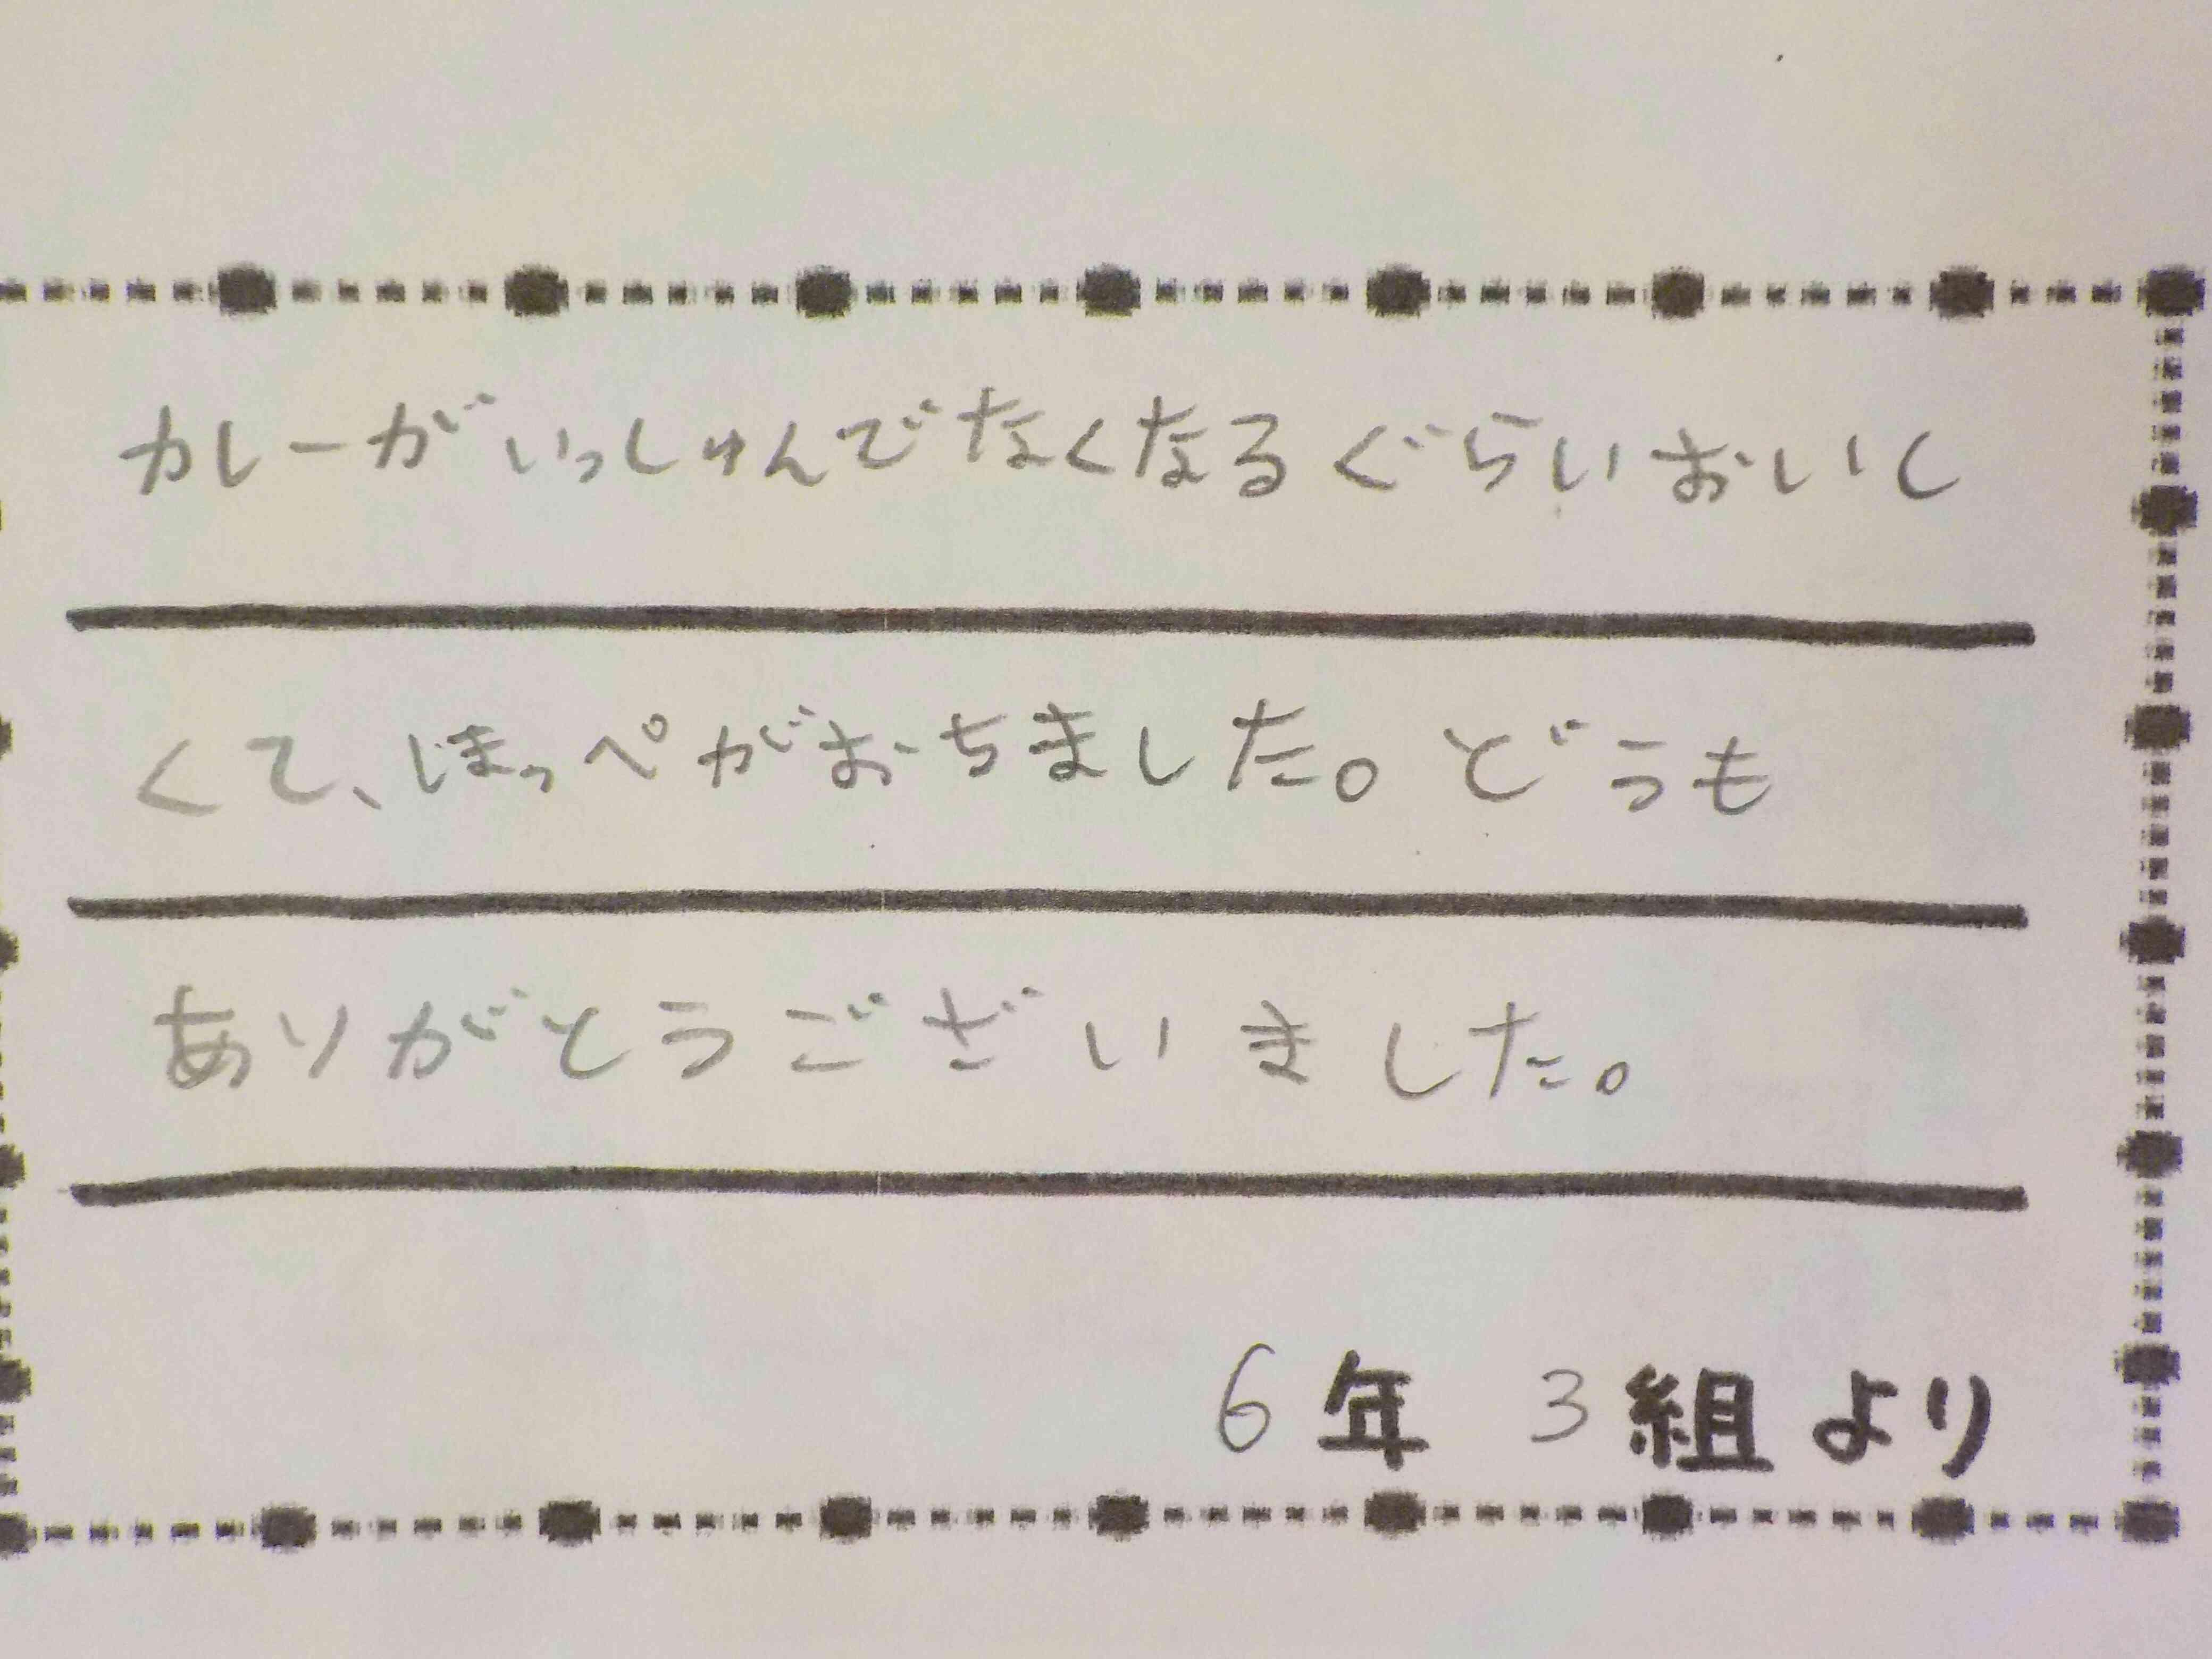 カレーがいっしゅんでなくなるぐらいおいし
くて、ほっぺがおちました。どうも
ありがとうございました。
6年 3組より